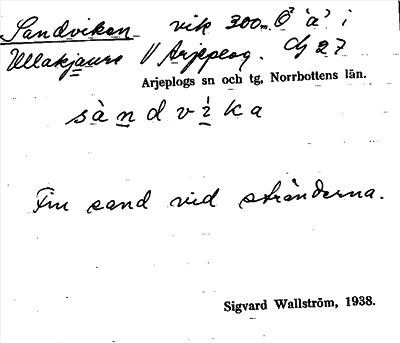 Sandviken vik 300 m. Ö "a" i
Ullakjaure V Arjeplog. Cg 27
Arjeplogs sn och tg, Norrbottens län.
sàndvika
Fin sand vid stränderna.
Sigvard Wallström, 1938.